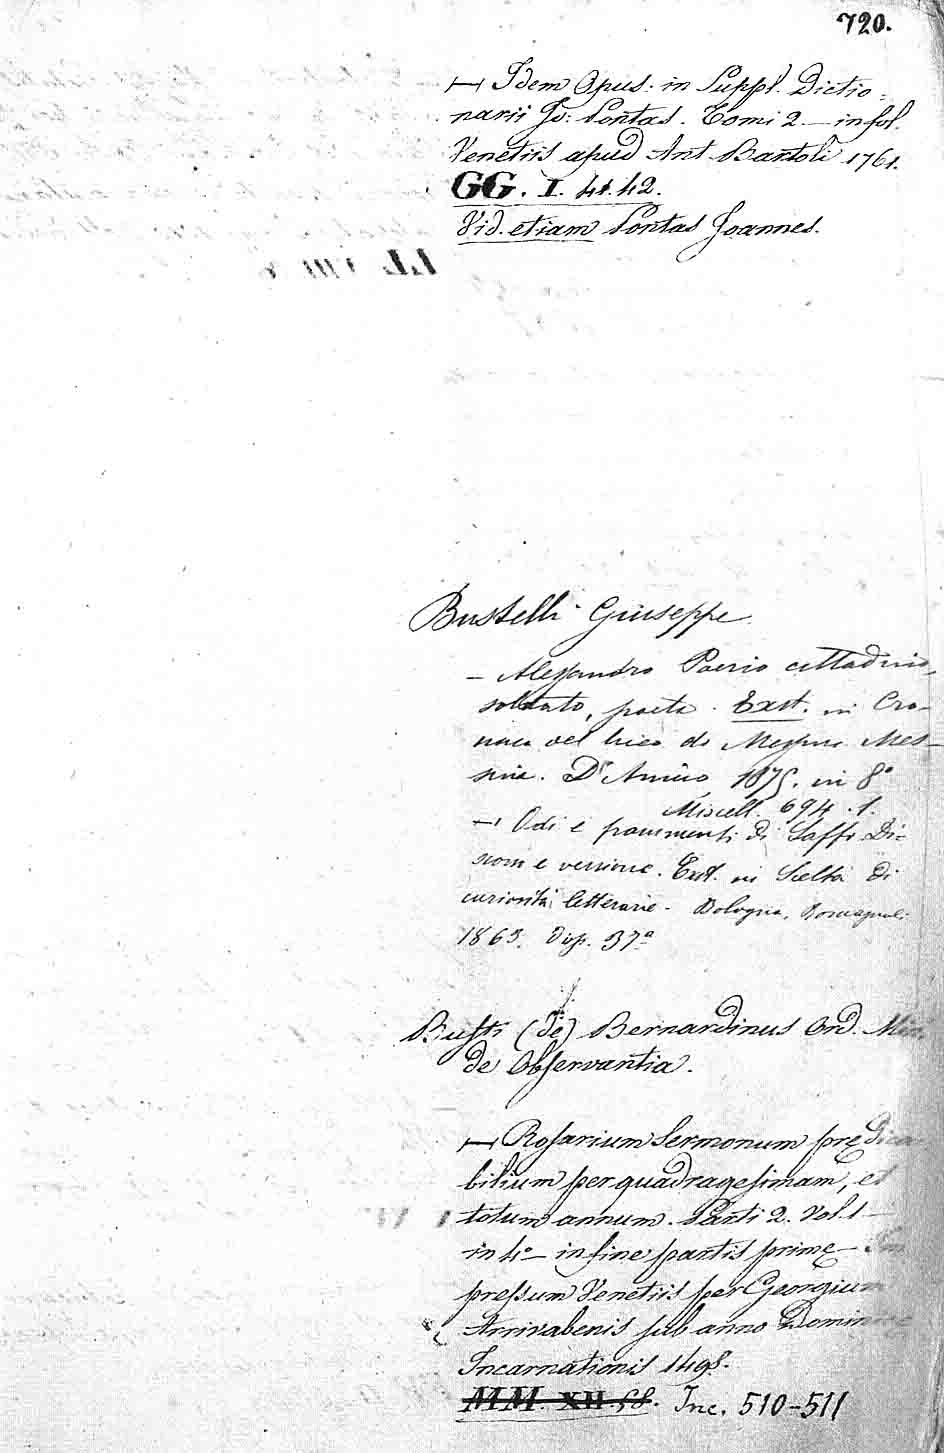 720.
— Idem Opus: in Suppl. Dictio-
narii Jo: Pontas. Tomi 2 — in fol.
Venetiis apud Ant. Bartoli 1761.
GG. I. 41. 42.
Vid. etiam Pontas Joannes.
Bustelli Giuseppe
— Alessandro Poerio cittadino,
soldato, poeta. Ext. in Cro-
naca del liceo di Messina. Mes-
sina. D'Amico 1875. in 8°
Miscell. 694. 1.
— Odi e frammenti di Saffo. Di-
scorso e versione. Ext. in Scelta di
curiosità letterarie. Bologna, Romagnoli
1863. disp. 37ª
Busti (de) Bernardinus Ord. Min.
de Observantia.
— Rosarium Sermonum prędica
bilium per quadragesimam, et
totum annum. Parti 2. Vol. 1 —
in 4° — in fine partis primę — Im
pressum Venetiis per Georgium
Arrivabenis sub anno Dominicę
Incarnationis 1498.
MM. XII. 58. Inc. 510-511